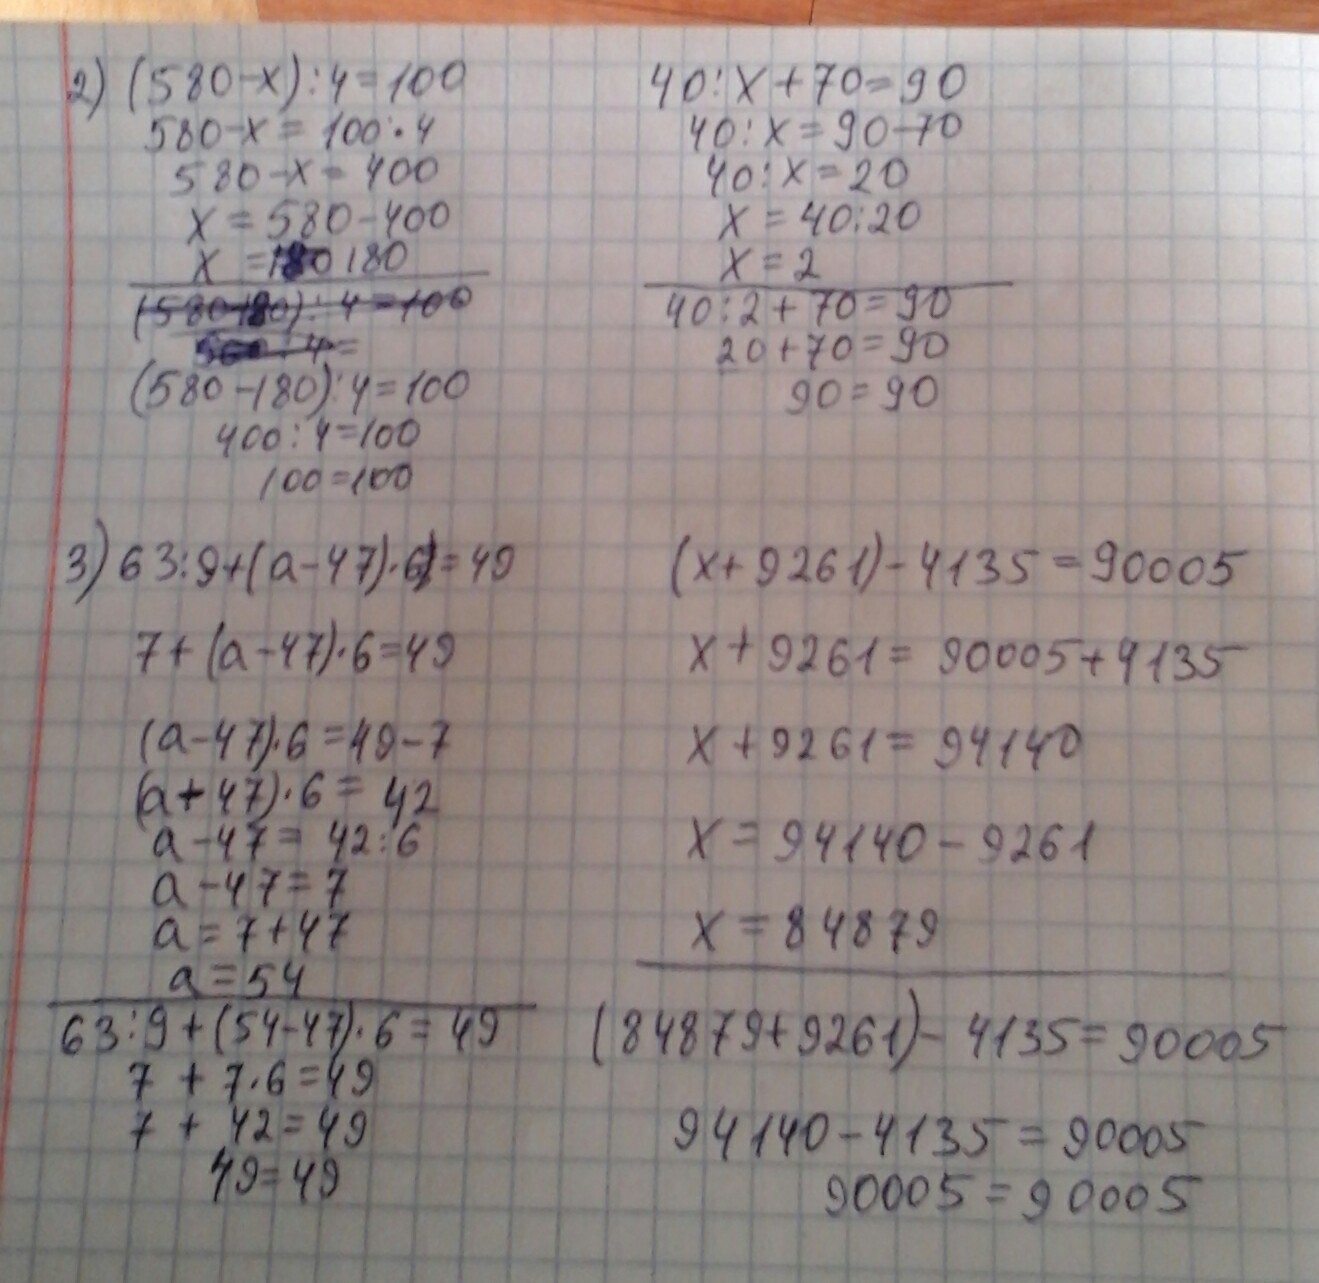 2) (580-x):4=100
580-x=100·4
580-x=400
x=580-400
x=180 180
(580-180):4=100
:4=
(580-180):4=100
400:4=100
100=100
40:x+70=90
40:x=90-70
40:x=20
x=40:20
x=2
40:2+70=90
20+70=90
90=90
3) 63:9+(a-47)·6=49
7+(a-47)·6=49
(a-47)·6=49-7
(a+47)·6=42
a-47=42:6
a-47=7
a=7+47
a=54
63:9+(54-47)·6=49
7+7·6=49
7+42=49
49=49
(x+9261)-4135=90005
x+9261=90005+4135
x+9261=94140
x=94140-9261
x=84879
(84879+9261)-4135=90005
94140-4135=90005
90005=90005